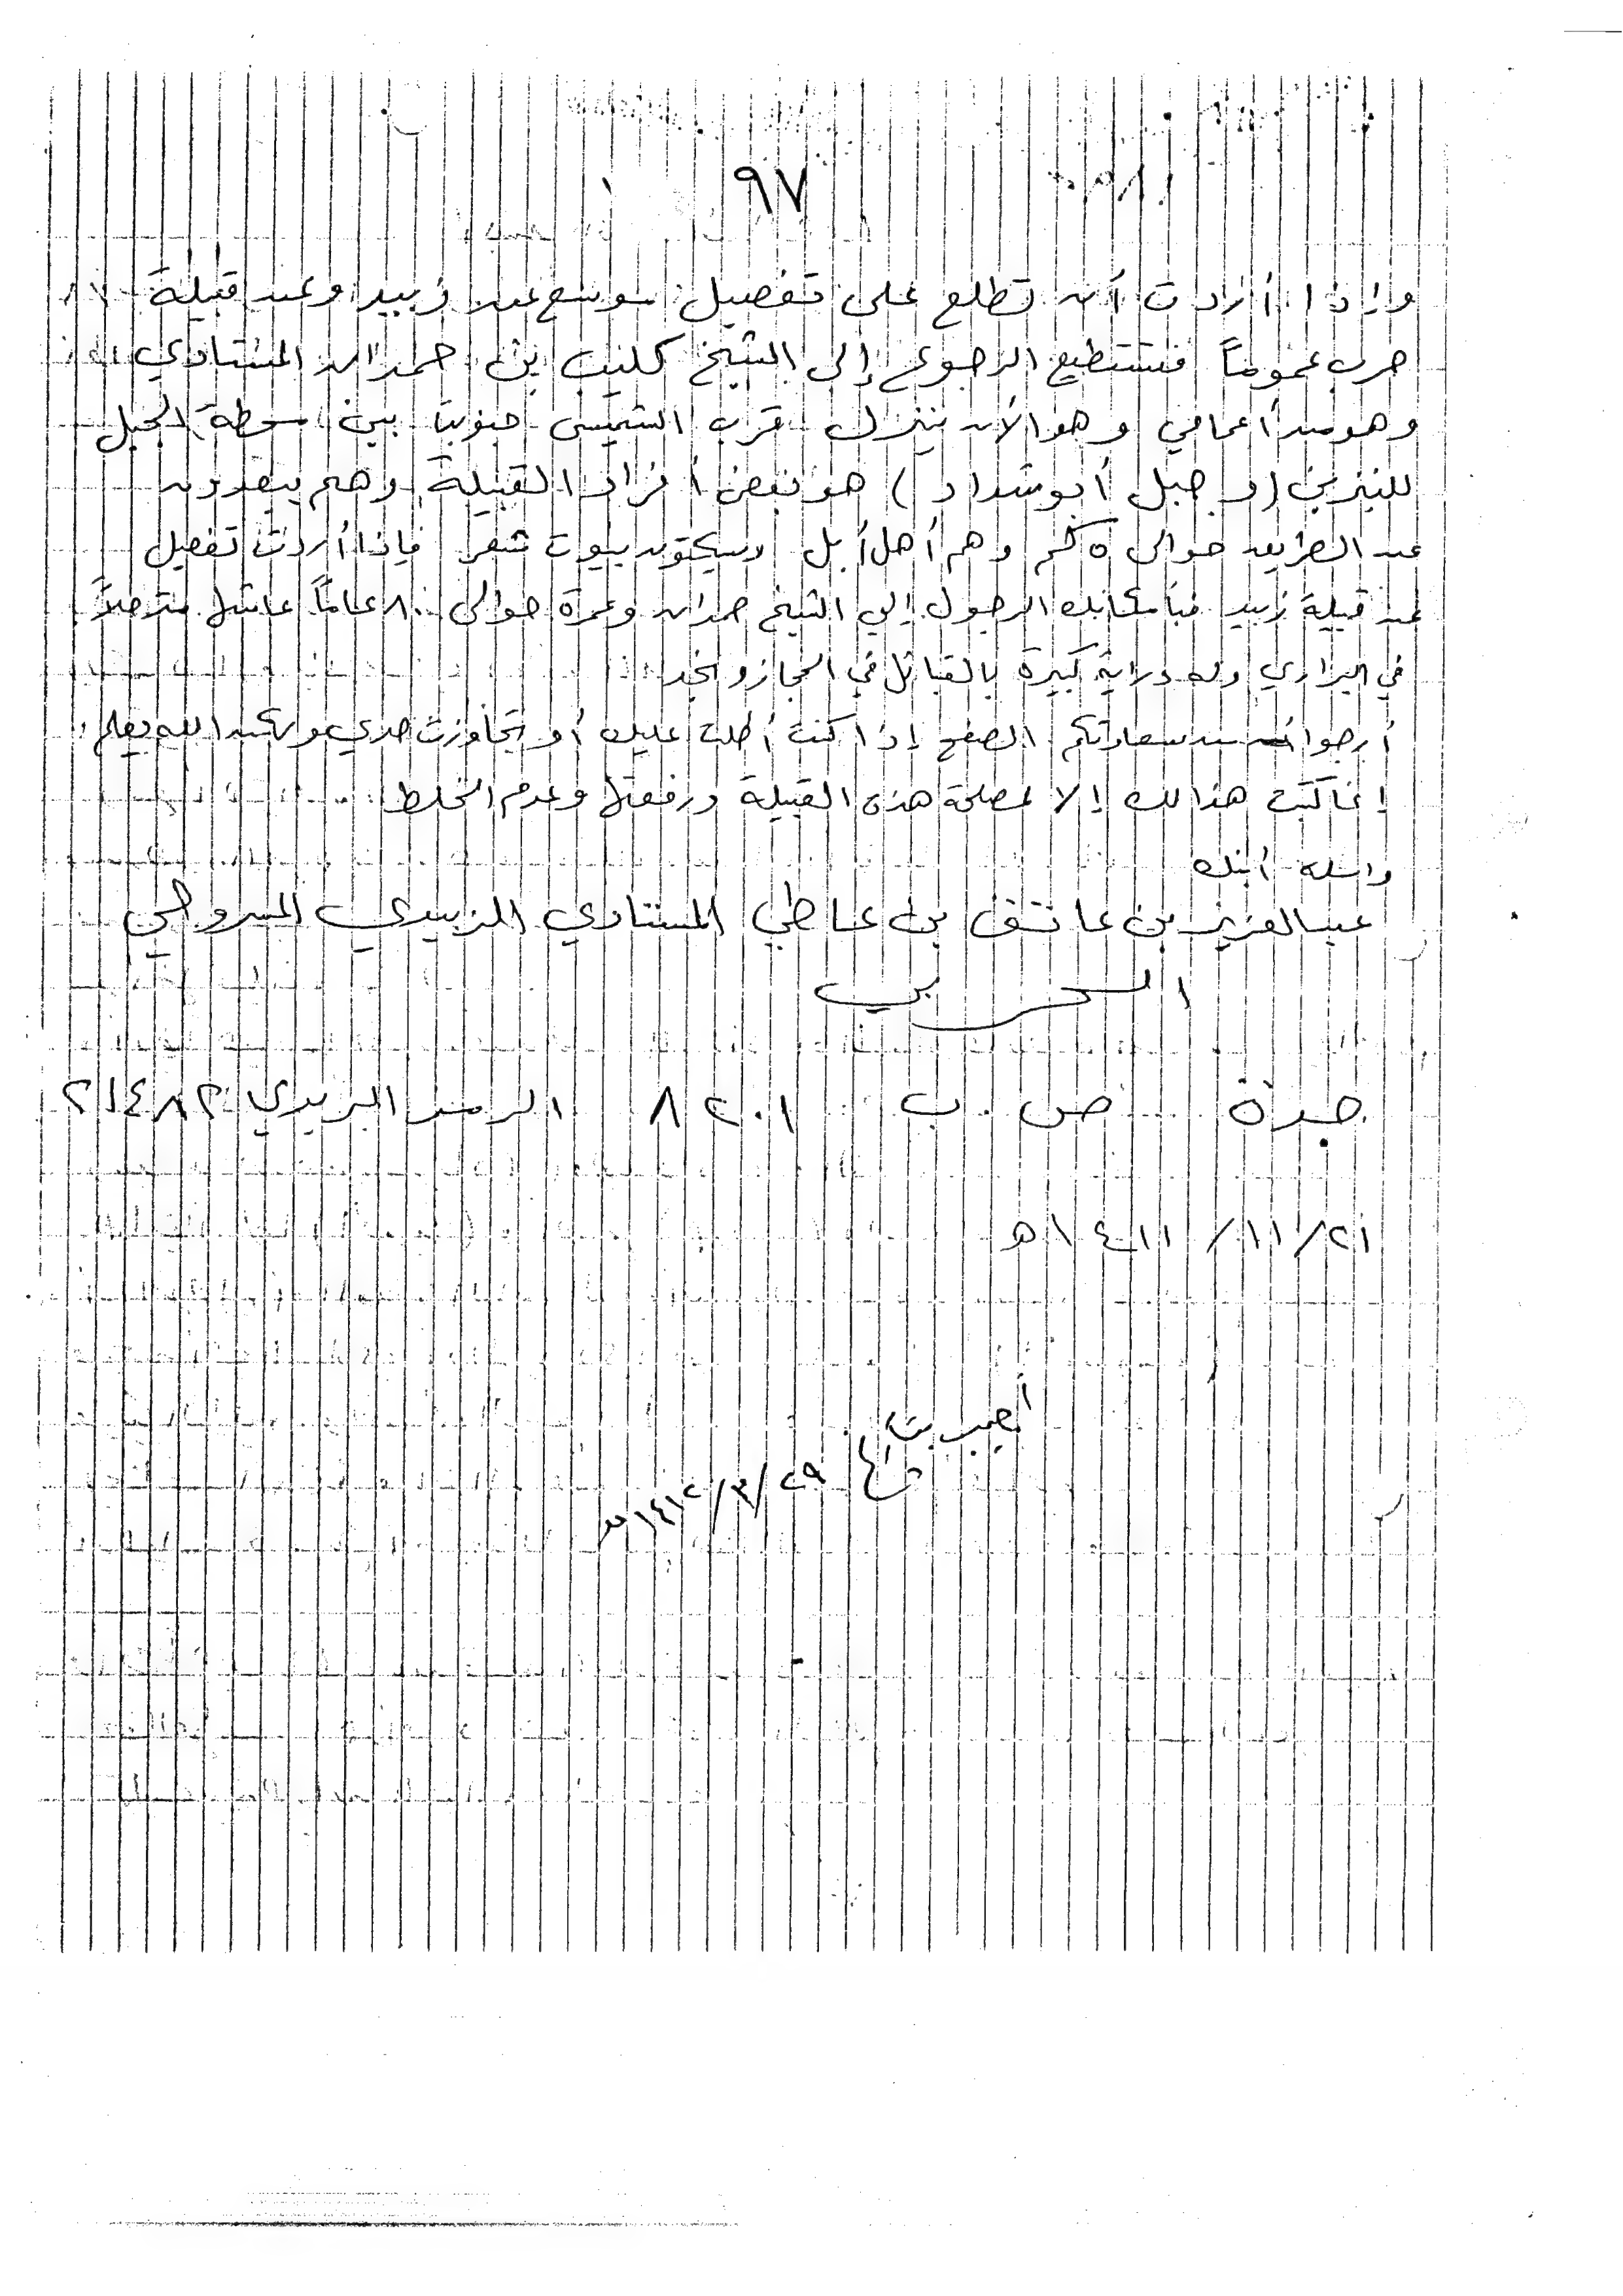 ٩٧
وإذا أردت أن تطلع على تفصيل موسع عن زبيد وعن قبيلة
حرب عموماً فتستطيع الرجوع إلى الشيخ كليب بن حمدان المستادي
وهو من أعمامي وهو الأن ينزل قرب الشميسى جنوباً بين محطة الجبل
للبنزين (و جبل أبو شداد) هو بعض أفراد القبيلة وهم يبعدون
عن الطريق حوالى ٥ كم وهم أهل أبل ويسكنون بيوت شعر فإذا أردت تفصيل
عن قبيلة زبيد فبأمكانك الرجول إلي الشيخ حمدان وعمرة حوالى ٨٠ عاماً عاشها مترحلاً
في البراري وله دراية كبيرة بالقبائل في الحجاز ونجد
أرجوا من سعادتكم الصفح إذا كنت أطلت عليك أو تجاوزت حدي ولكن الله يعلم
إنما كتبت هذا لك إلا لمصلحة هذه القبيلة ورفعتها وعدم الخلط
أبنك
عبدالعزيز بن عاتق بن عاطي المستادي الزبيدي المسروحي
الحربي
جدة ص . ب ٨٢٠١ الرمز البريدي ٢١٤٨٢
٢١ / ١١ / ١٤١١ هـ
أجيب بتا
٢٩ / ٣ / ١٤١٢ هـ